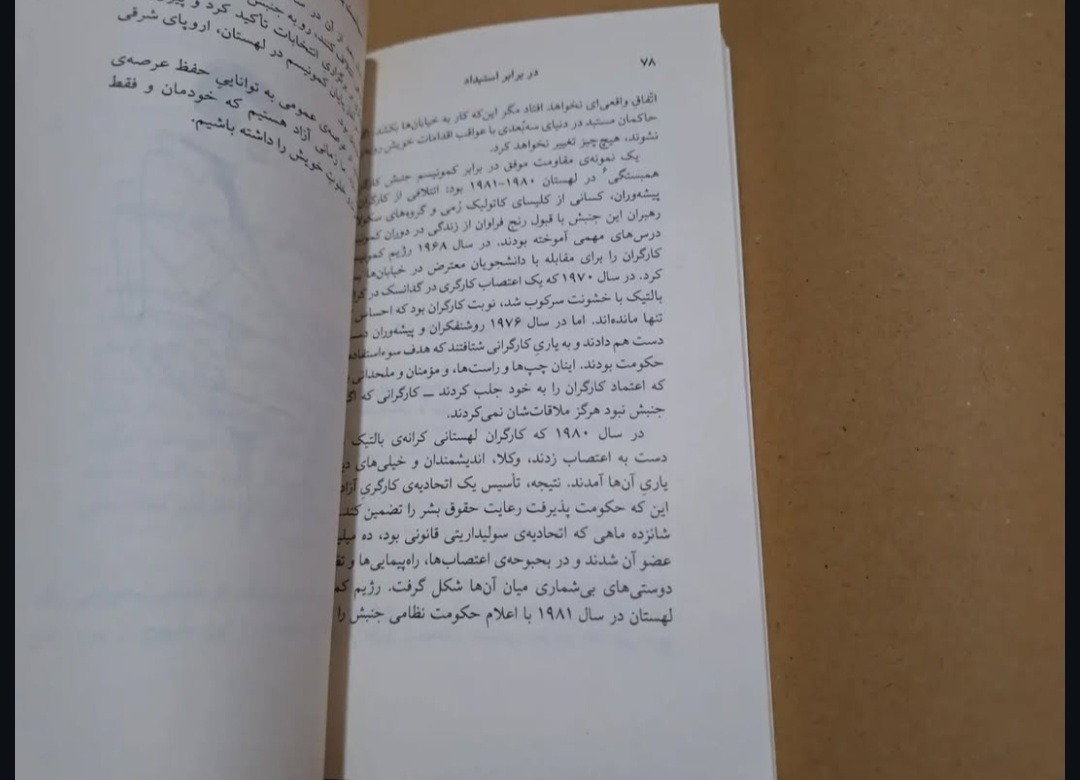 ۷۸
در برابر استبداد
اتّفاقِ واقعی‌ای نخواهد افتاد مگر این‌که کار به خیابان‌ها بکشد.
حاکمان مستبد در دنیای سه‌بُعدی با عواقب اقدامات خویش
نشوند، هیچ‌چیز تغییر نخواهد کرد.
یک نمونه‌ی مقاومت موفق در برابر کمونیسم جنبش
همبستگی۶ در لهستان ۱۹۸۰-۱۹۸۱ بود: ائتلافی از کارگران
پیشه‌وران، کسانی از کلیسای کاتولیک رُمی و گروه‌های
رهبران این جنبش با قبول رنج فراوان از زندگی در دوران
درس‌های مهمی آموخته بودند. در سال ۱۹۶۸ رژیم
کارگران را برای مقابله با دانشجویان معترض در خیابان‌ها
کرد. در سال ۱۹۷۰ که یک اعتصاب کارگری در گدانسک در
بالتیک با خشونت سرکوب شد، نوبت کارگران بود که احساس
تنها مانده‌اند. اما در سال ۱۹۷۶ روشنفکران و پیشه‌وران
دست هم دادند و به یاریِ کارگرانی شتافتند که هدف
حکومت بودند. اینان چپ‌ها و راست‌ها، و مؤمنان و ملحدانی
که اعتماد کارگران را به خود جلب کردند ــ کارگرانی که
جنبش نبود هرگز ملاقات‌شان نمی‌کردند.
در سال ۱۹۸۰ که کارگران لهستانی کرانه‌ی بالتیک
دست به اعتصاب زدند، وکلا، اندیشمندان و خیلی‌های
یاریِ آن‌ها آمدند. نتیجه، تأسیس یک اتحادیه‌ی کارگریِ
این که حکومت پذیرفت رعایت حقوق بشر را تضمین کند.
شانزده ماهی که اتحادیه‌ی سولیداریتی قانونی بود، ده
عضو آن شدند و در بحبوحه‌ی اعتصاب‌ها، راه‌پیمایی‌ها و
دوستی‌های بی‌شماری میان آن‌ها شکل گرفت. رژیم
لهستان در سال ۱۹۸۱ با اعلام حکومت نظامی جنبش را
بعد از آن در
کنند، رو به جنبش
برگزاریِ انتخابات تأکید کرد و
پایان کمونیسم در لهستان، اروپای شرقی
عرصه‌ی عمومی به تواناییِ حفظ عرصه‌ی
ما زمانی آزاد هستیم که خودمان و فقط
خویش را داشته باشیم.